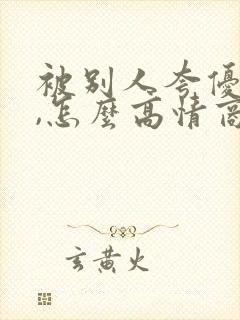 被别人夸優
,怎麼高情商
玄黄火